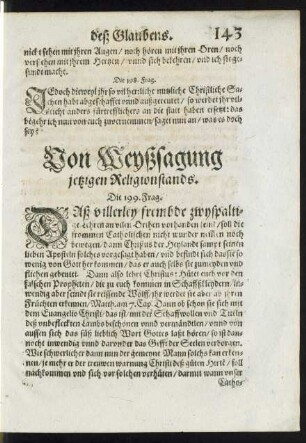 deß Glaubens. 143
nicht sehen mit jhren Augen / noch hören mit jhren Oren / noch
verstehen mit jhrem Hertzen / vund sich bekehren / und ich sie ge-
sundt macht.
Die 198. Frag.
JEdoch dieweyl jhr so vil herrliche nutzliche Christliche Sa-
chen habt abgeschaffet vnnd außgereutet / so werdet jhr vil-
leicht anders fürtrefflichers an die statt haben ersetzt: das
begehr ich nun von euch zuvernemmen / saget nun an / was es doch
sey?
Von Weyßsagung
jetzigen Religionstands.
Die 199. Frag.
DAß villerley frembde zwyspalti-
ge Lehren an vilen Orthen vorhanden seind / soll die
frommen Catholischen nicht wunder nemmen noch
bewegen / dann Christus der Heylandt sampt seinen
lieben Aposteln solches vorgesagt haben / vnd befindt sich das sie so
wenig von Gott herkommen / das er auch selbs sie zumeyden vnd
fliehen gebeutet. Dann also lehrt Christus: Hütet euch vor den
falschen Propheten / die zu euch kommen in Schaffskleydern / in-
wendig aber seind sie reissende Wölff / jhr werdet sie aber an jhren
Früchten erkennen / Matth. am 7. Cap. Dann ob schon sie sich mit
dem Euangelio Christi / das ist / mit der Schaffwollen vnd Titeln
deß vnbefleckten Lambs beschönen vnnd vermäntlen / vnnd von
aussen sich das süß lieblich Wort Gottes lasst hören / so ist dann
nocht inwendig vnnd darunder das Gifft der Seelen verborgen.
Wie schwerlicher dann nun der gemeyne Mann solchs kan erken-
nen / je mehr er der trewen warnung Christi deß güten Hertē / soll
nachkommen vnd sich vor solchen verhüten / darmit wann vnser
Catho-